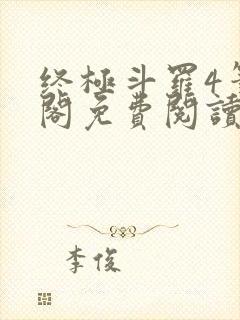 终極斗羅4
閣免費閱讀
李俊